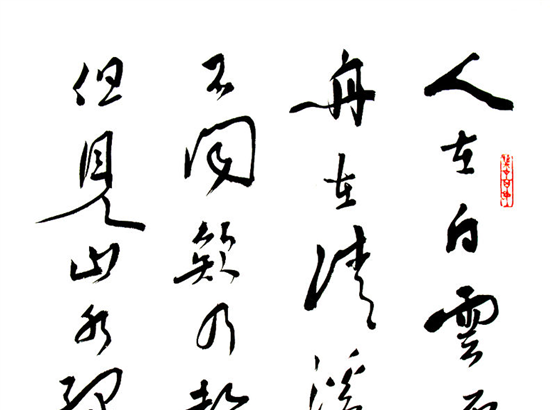 人在白雲
舟在清溪
不聞欸乃
但見山水